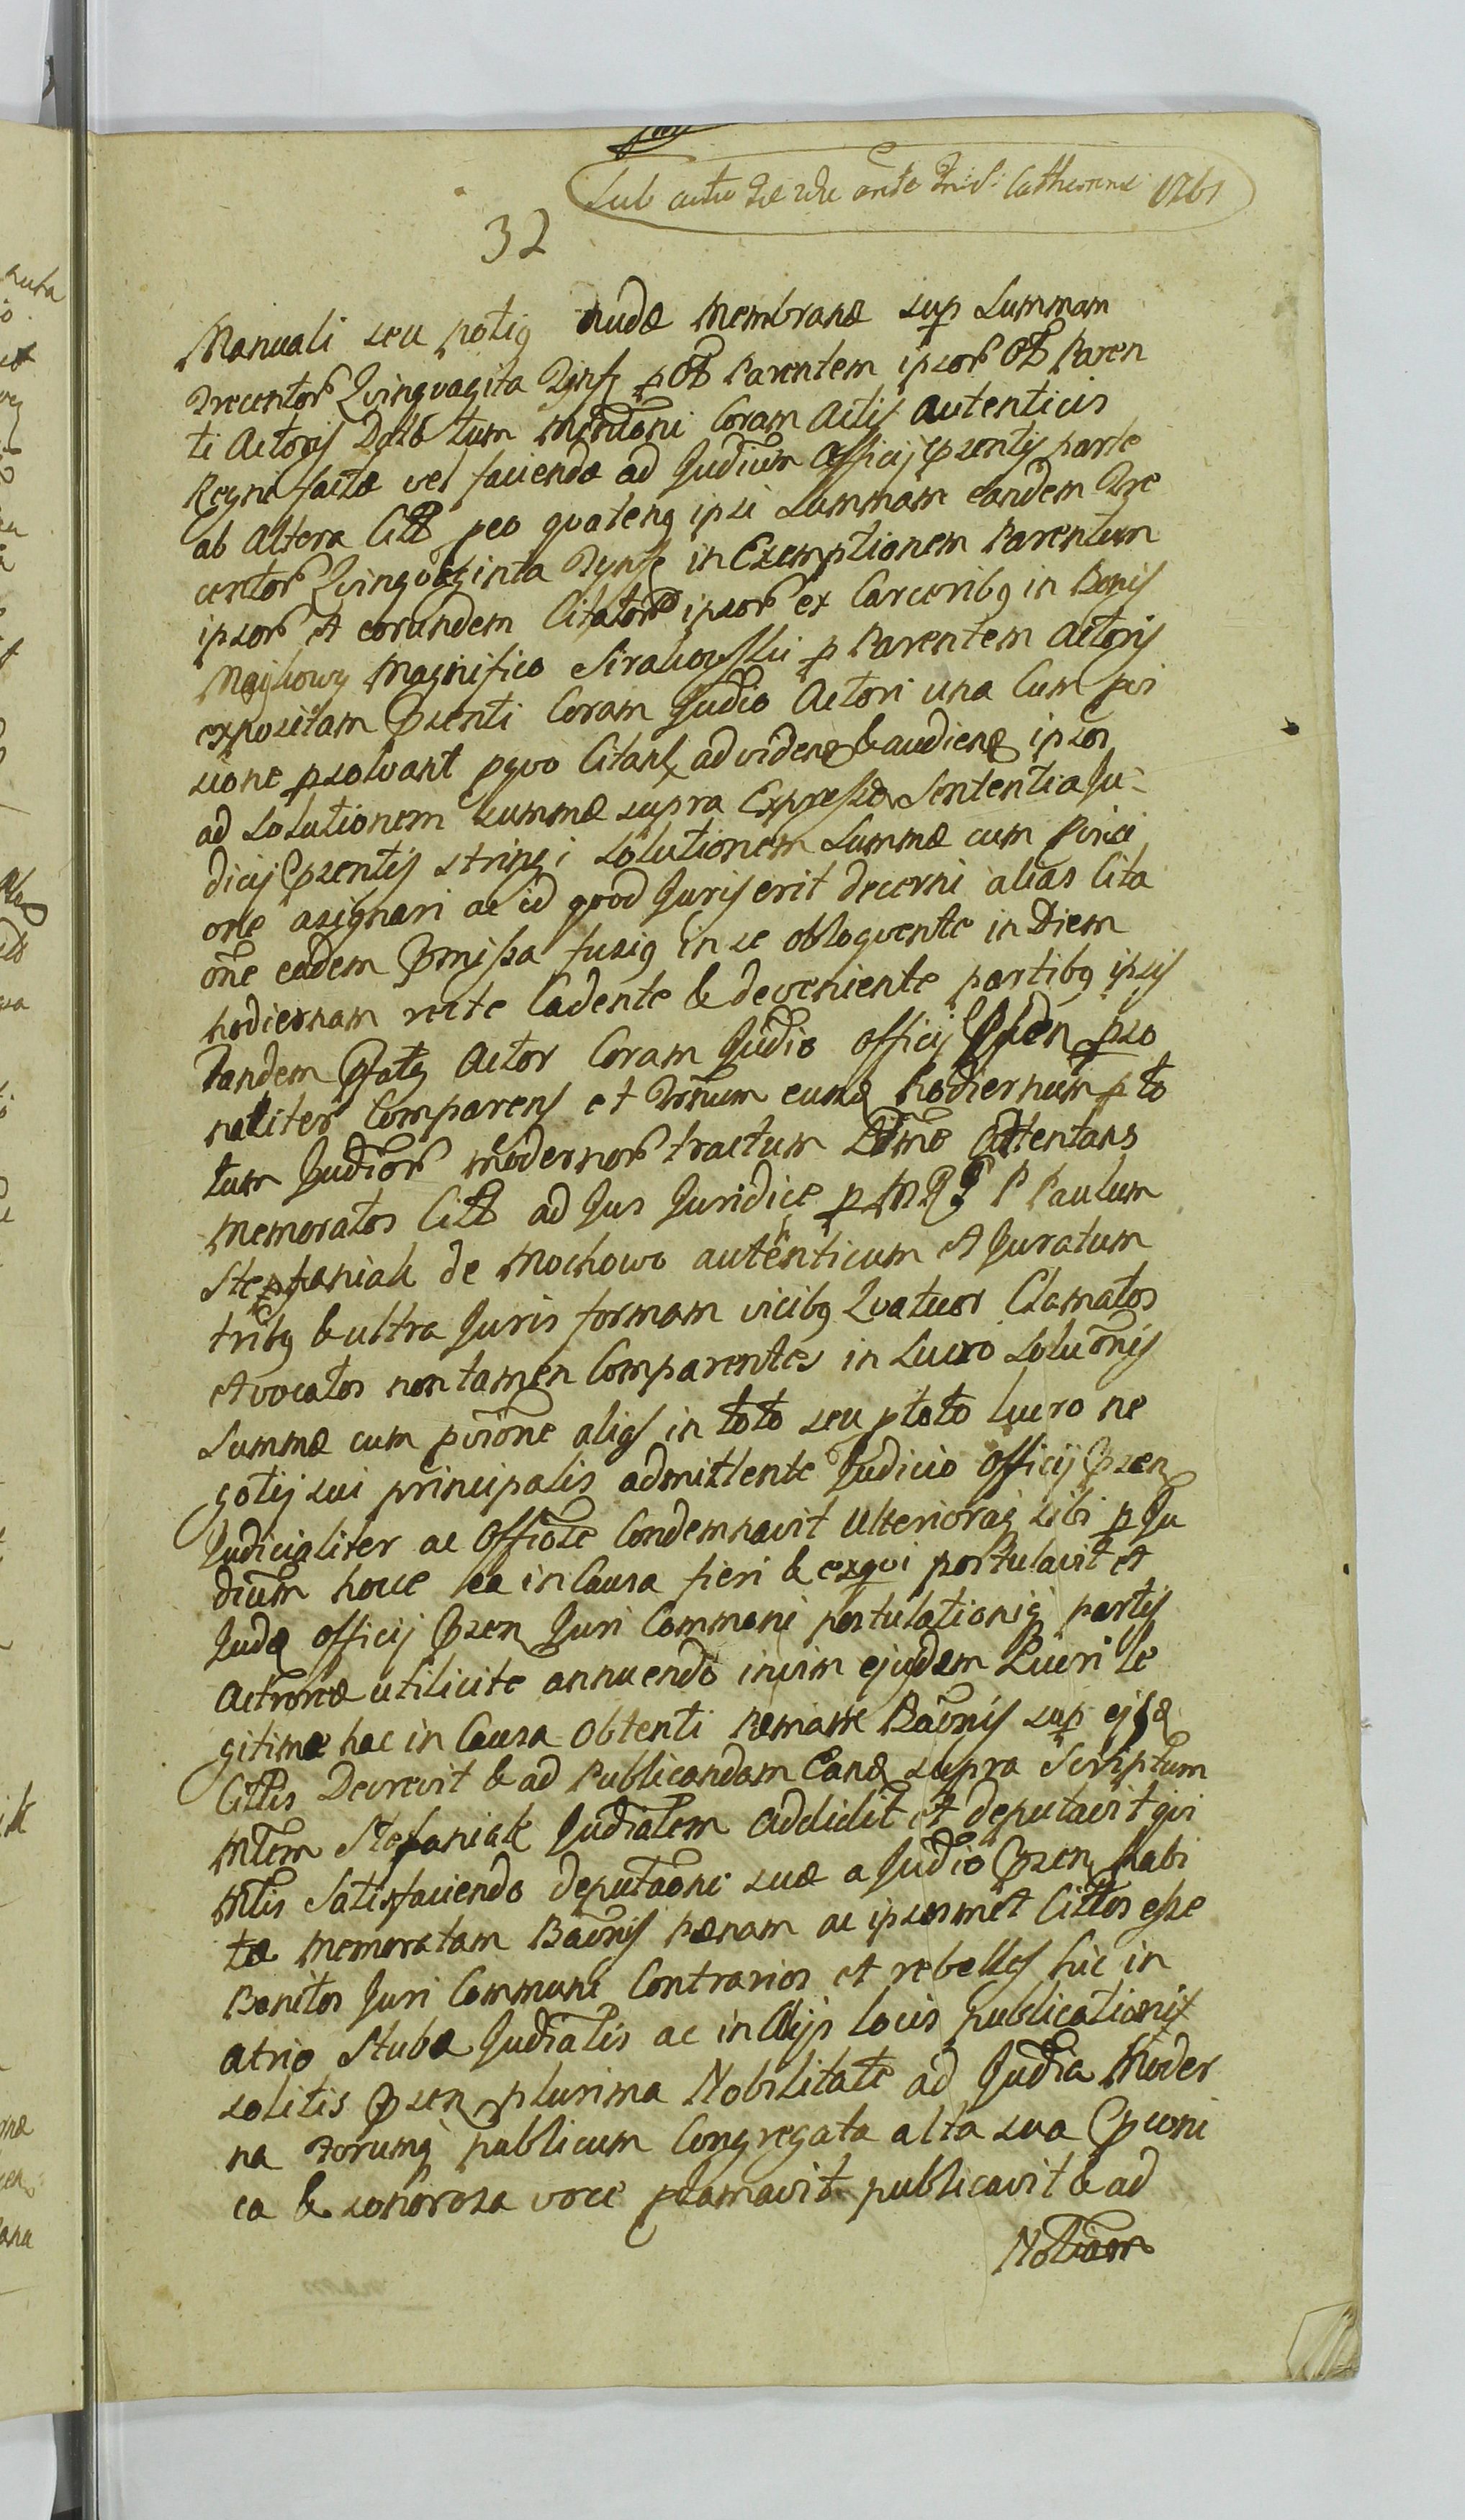 Sub actu ante Catharinae 1761
32
Manuali seu potiq nudæ Membranæ sup Summam
Trecentor Quinquagita Tynf p Ob Parentem ipsor Ob Paren
ti Actoris Datæ tum Coram Actis Autenticis
Regni factæ vel faciendæ ad Judicium Officij Prsentis parte
ab Altera Citt peo quatenq ipsi Summam eandem Tre
centor Quinquaginta Tynf in Exemptionem Parentum
ipsor et eorundem Citator ipsor ex Carceribq in Bonis
Magnifico p Parentem Actoris
expositam Prsenti Coram Judio Actori una Cum poi
sione psolvant pquo Citant ad videnď & audienď ipsos
ad Solutionem Summæ supra Expressæ Sententia Ju-
dicij Prsentis stringi Solutionem Summæ cum poisi
one asignari ac id quod Juris erit decerni alias Cita
one eadem Prmissa fusiq in se obloquente in Diem
hodiernam recte Cadente & deveniente partibq ipsis
Tandem Prfatq Actor Coram Judio Officij Prsen pso
naliter Comparens et Trnum eunď hodiernum p to
tum Judior modernor tractum Attentans
Memoratos Citt ad Jus Juridice p M P Paulum
Stephaniak de Mochowo autenticum et Juratum
tribq & ultra Juris formam vicibq Quatuor Clamatos
et vocatos non tamen Comparentes in Lucro Soluonis
Summæ cum poisione alias in toto seu p toto lucro ne
gotij sui principalis admittente Judicio Officij Prsen
Judicialiter ac Officiose Condemnavit Ulterioraq sibi p Ju
dicium hocce ea in Causa fieri & exqui postulavit et
Judm Officij Prsen Juri Communi postulationiq partis
Actoreæ utilicite annuendo in vim ejusdem Lucri le
gitime hac in Causa Obtenti Pænam Baonis sup ejsď
Cittis Decrevit & ad Publicandam Eanď supra Scriptum
Mtem Stefaniak Judialem Addidit et deputavit qui
Mtlis Satisfaciendo deputaoni suæ a Judio Prsen habi
tæ memoratam Baonis Pænam ac ipsosmet Cittos esse
Banitos Juri Communi Contrarios et rebelles hic in
atrio Stubæ Judialis ac in Alijs locis publicationis
solitis Prsen plurima Nobilitate ad Judia Moder
na Forumq publicum Congregata alta sua Prconi
ca & sonorosa voce plamavit publicavit & ad
Notiam